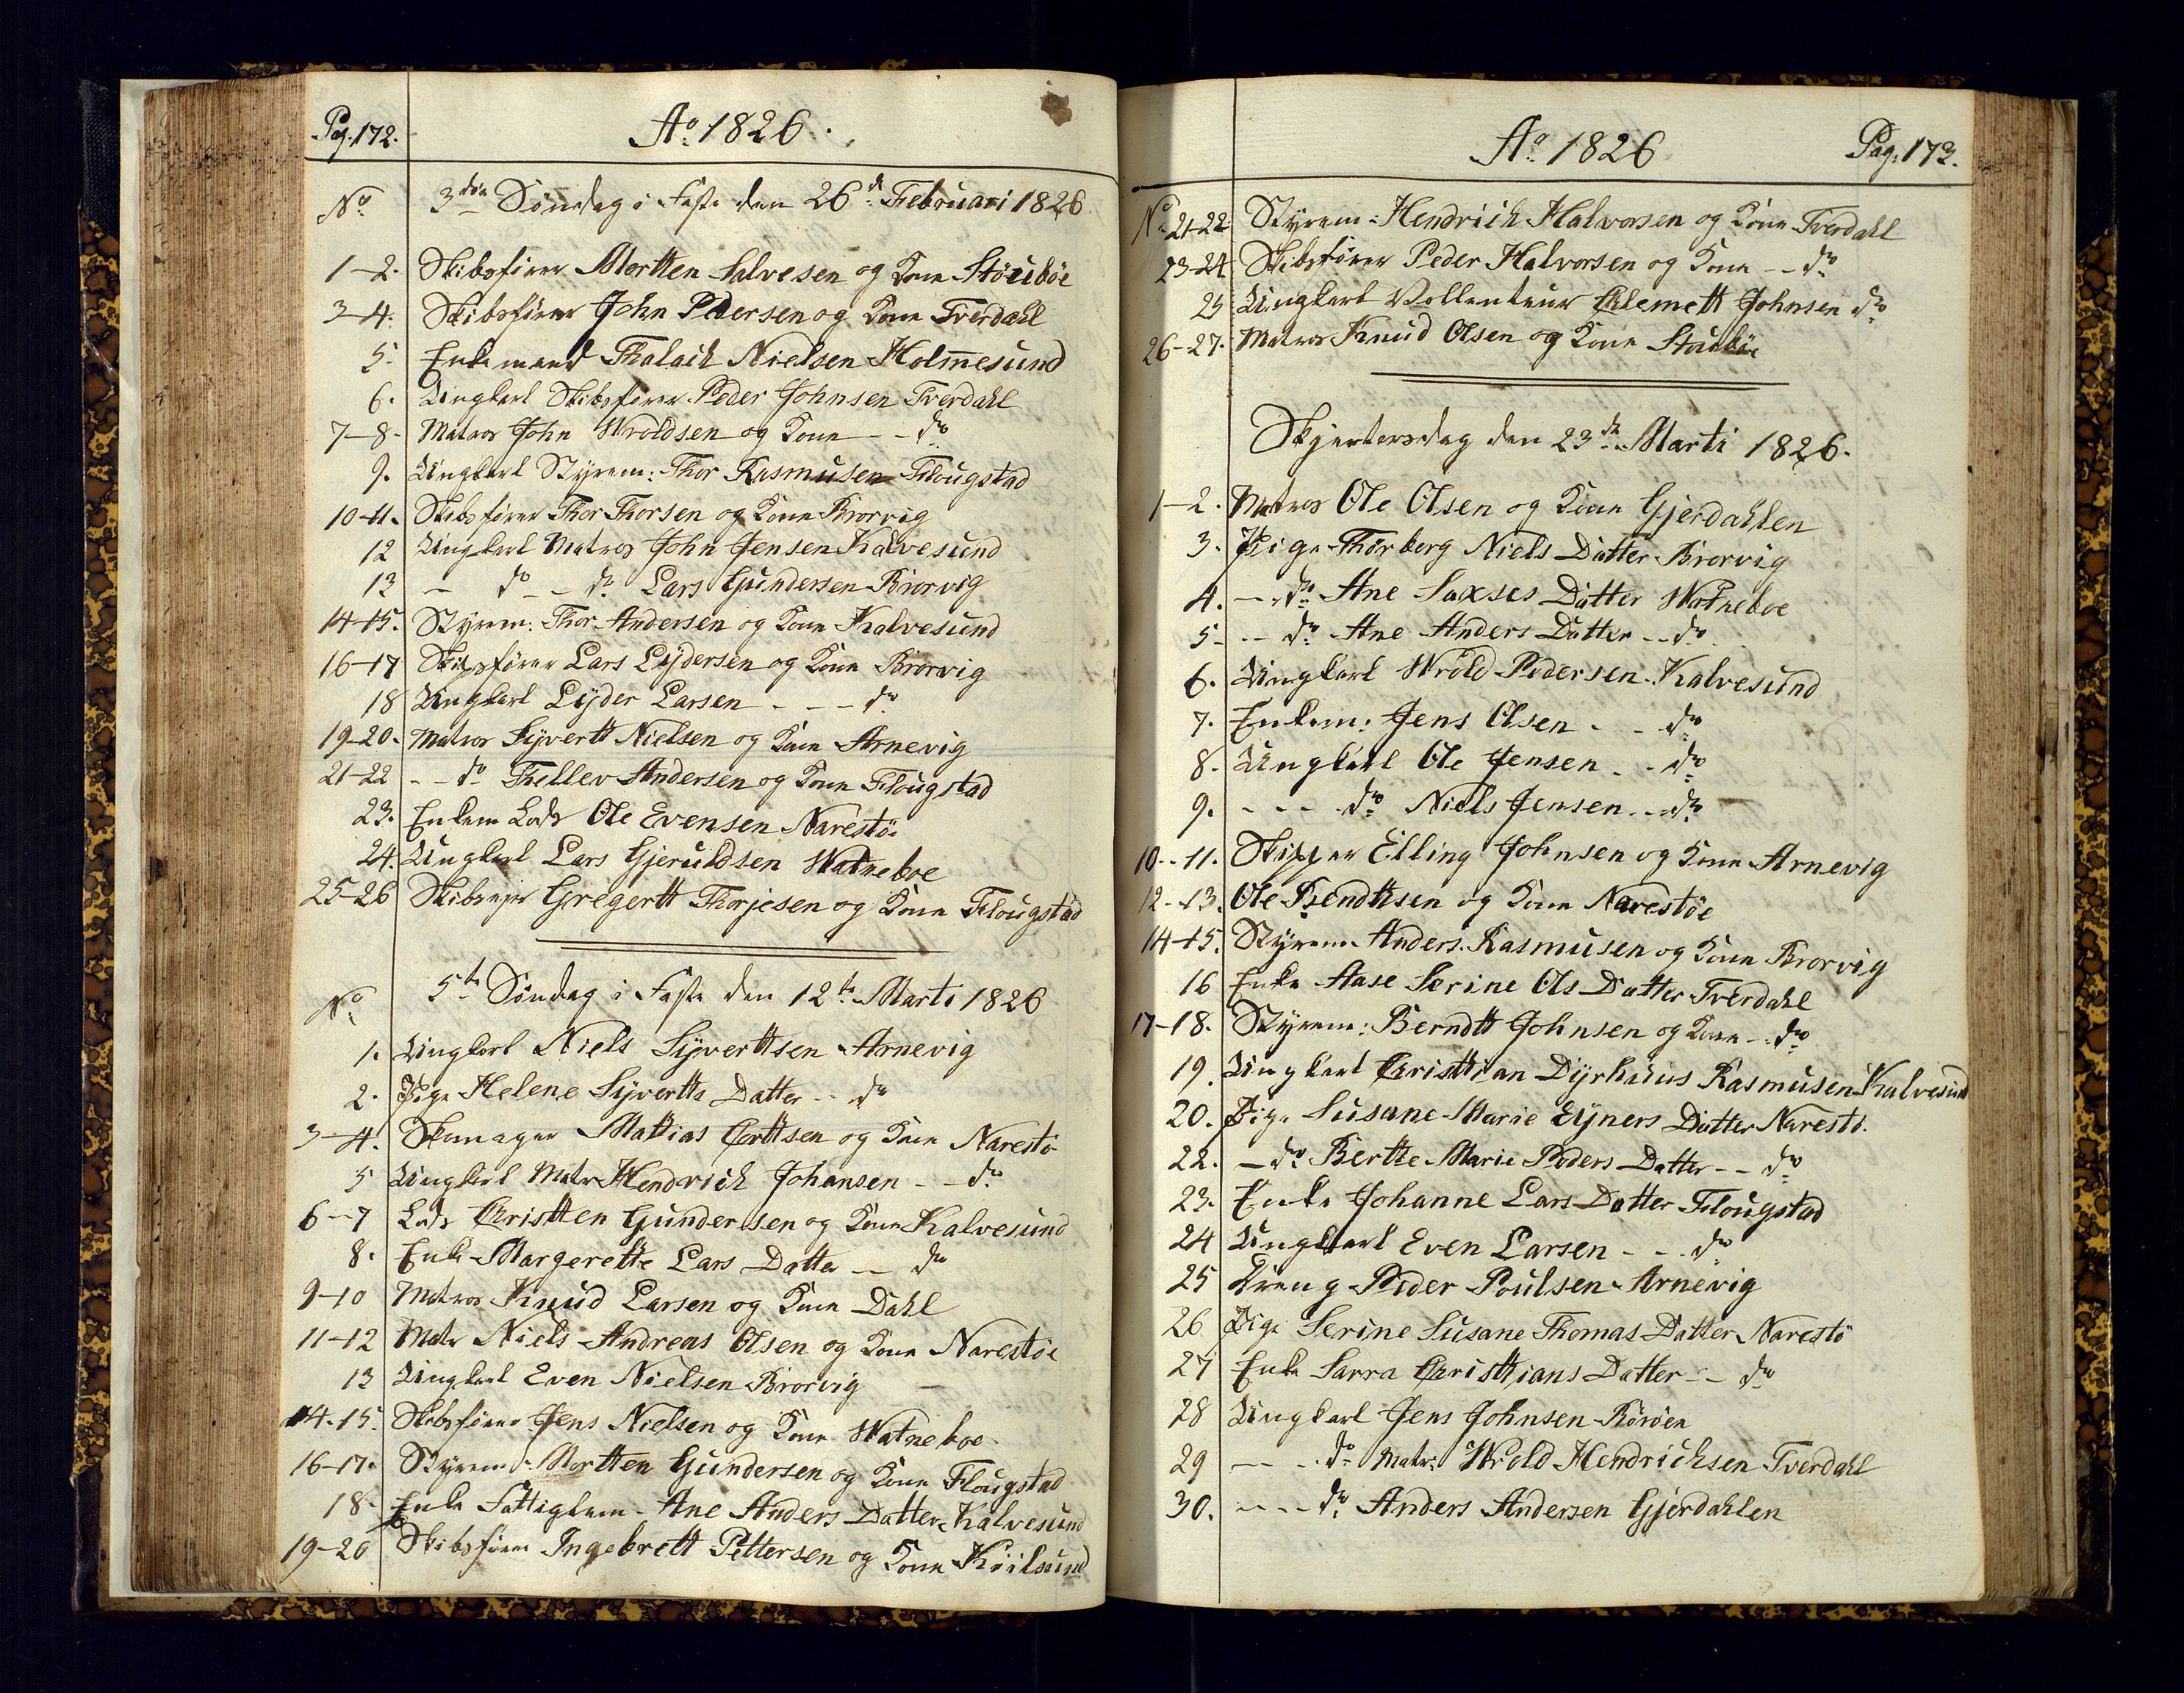 Pag. 172.
Ao 1826.
No 3die Søndag i Faste den 26de Februari 1826
1-2. Skibsfører Mortten Salvesen og Kone Stöuböe
3-4. Skibsfører John Pedersen og Kone Tverdahl
5. Enkemand Thalach Nielsen Holmesund
6. Ungkarl Skibsfører Peder Johnsen Tverdahl
7-8. Matros John Wroldsen og Kone - - do
9. Ungkarl Styrem: Thor Rasmusen Flougstad
10-11. Skibsfører Thor Thorsen og Kone Brorvig
12 Ungkarl Matros John Jensen Kalvesund
13 - do - - do Lars Gundersen Brorvig
14-15. Styrem: Thor Andersen og Kone Kalvesund
16-17 Skibsfører Lars Lÿdersen og Kone Brorvig
18 Ungkarl Lÿder Larsen - - - do
19-20. Matros Sÿvertt Nielsen og Kone Arnevig
21-22 - - do Thellev Andersen og Kone Flougstad
23. Enkem Lods Ole Evensen Narestö
24. Ungkarl Lars Gjeruldsen Watneboe
25-26 Gregertt Thorjesen og Kone Flougstad
No 5te Søndag i Faste den 12te Marti 1826
1. Ungkarl Niels Sÿverttsen Arnevig
2. Pige Helene Sÿvertts Datter - - do
3-4. Skomager Mattias Corttsen og Kone Narestö
5 Ungkarl Matr Hendrich Johansen - - do
6-7 Lods Christten Gundersen og Kone Kalvesund
8. Enke Margerette Lars Datter - do
9-10 Matros Knud Larsen og Kone Dahl
11-12 Matr Niels Andreas Olsen og Kone Narestöe
13 Ungkarl Even Nielsen Brorvig
14-15. Skibsfører Jens Nielsen og Kone Watneboe
16-17. Styrem: Mortten Gundersen og Kone Flougstad
18. Enke Fattiglem - Ane Anders Datter Kalvesund
19-20 Skibsfører Ingebrett Pettersen og Kone Kiilsund
Ao 1826
Pag: 173.
No 21-22 Styrem: Hendrich Halvorsen og Kone Tverdahl
23-24 Skibsfører Peder Halvorsen og Kone - - do
25 Ungkarl Vollenteur Clemett Johnsen do
26-27. Matros Knud Olsen og Kone Stöuböe
Skjertorsdag den 23de Marti 1826.
1-2. Matros Ole Olsen og Kone Gjerdahlen
3. Pige Thorborg Niels Datter Brorvig
4. - do Ane Saxses Datter Watneboe
5 - - do Ane Anders Datter - - do
6. Ungkarl Wrold Pedersen Kalvesund
7. Enkem: Jens Olsen - - do
8. Ungkarl Ole Jensen - - do
9. - - - do Niels Jensen - - do
10-11. Skipper Elling Johnsen og Kone Arnevig
12-13. Ole Bendttsen og Kone Narestöe
14-15. Styrem Anders Rasmusen og Kone Brorvig
16 Enke Aase Serine Ols Datter Tverdahl
17-18. Styrem: Berndtt Johnsen og Kone - - do
19. Ungkarl Christtian Dÿrhuus Rasmusen Kalvesund
20. Pige Susane Marie Eÿners Datter Narestö.
22. - do Bertte Marie Peders Datter - - do
23. Enke Johanne Lars Datter Flougstad
24 Ungkarl Even Larsen - - do
25 Dreng Peder Poulsen Arnevig
26 Pige Serine Susane Thomas Datter Narestö
27 Enke Sarra Christtians Datter - - do
28 Ungkarl Jens Johnsen Böröen
29 - - - do Matr: Wrold Hendrichsen Tverdahl
30. - - - - do Anders Andersen Gjerdahlen